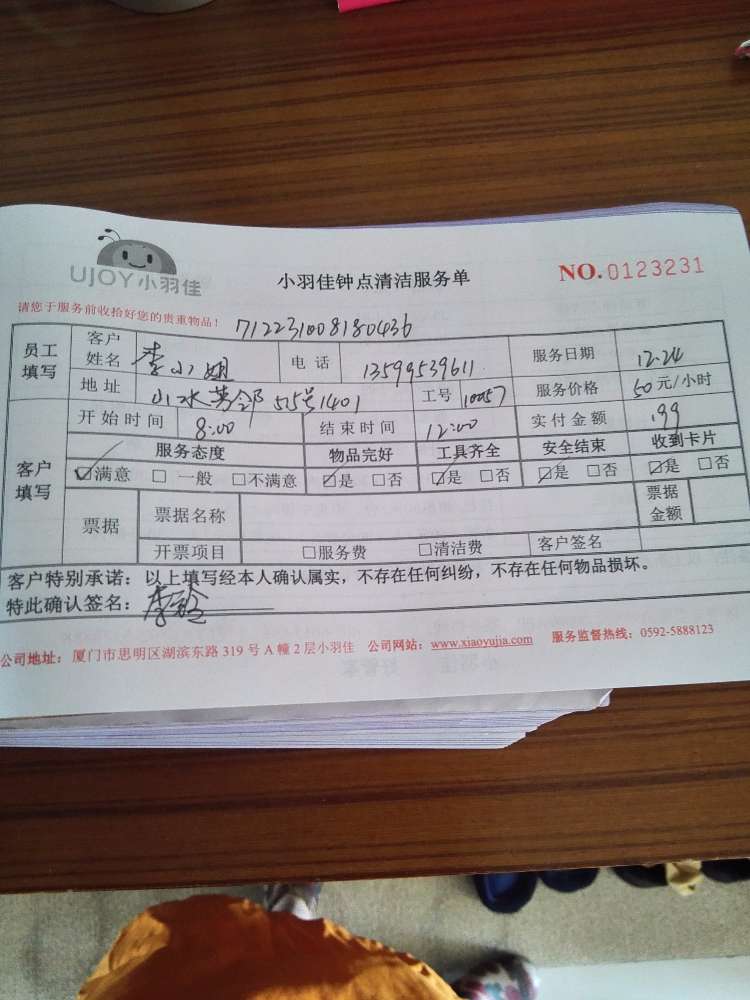 UJOY小羽佳
小羽佳钟点清洁服务单
NO.0123231
请您于服务前收拾好您的贵重物品!
712231008180436
员工填写 客户姓名 李小姐 电话 13599539611 服务日期 12.24
地址 山水芳邻515号1401 工号 10057 服务价格 50元/小时
客户填写 开始时间 8:00 结束时间 12:00 实付金额 199
服务态度 物品完好 工具齐全 安全结束 收到卡片
☑满意 □一般 □不满意 ☑是 □否 ☑是 □否 ☑是 □否 ☑是 □否
票据 票据名称 票据金额
开票项目 □服务费 □清洁费 客户签名
客户特别承诺:以上填写经本人确认属实,不存在任何纠纷,不存在任何物品损坏。
特此确认签名:
公司地址:厦门市思明区湖滨东路 319 号 A 幢 2 层小羽佳 公司网站:www.xiaoyujia.com 服务监督热线:0592-5888123